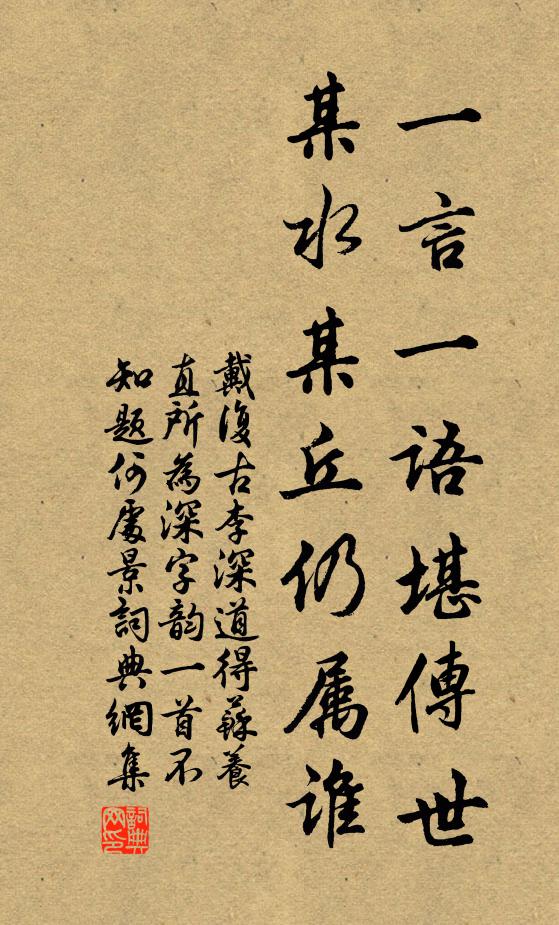 一言一語堪傳世
某水某丘仍属誰
戴復古李深道得蘇養
直所為深字韵一首不
知題何處景詞典網集
詞典網印